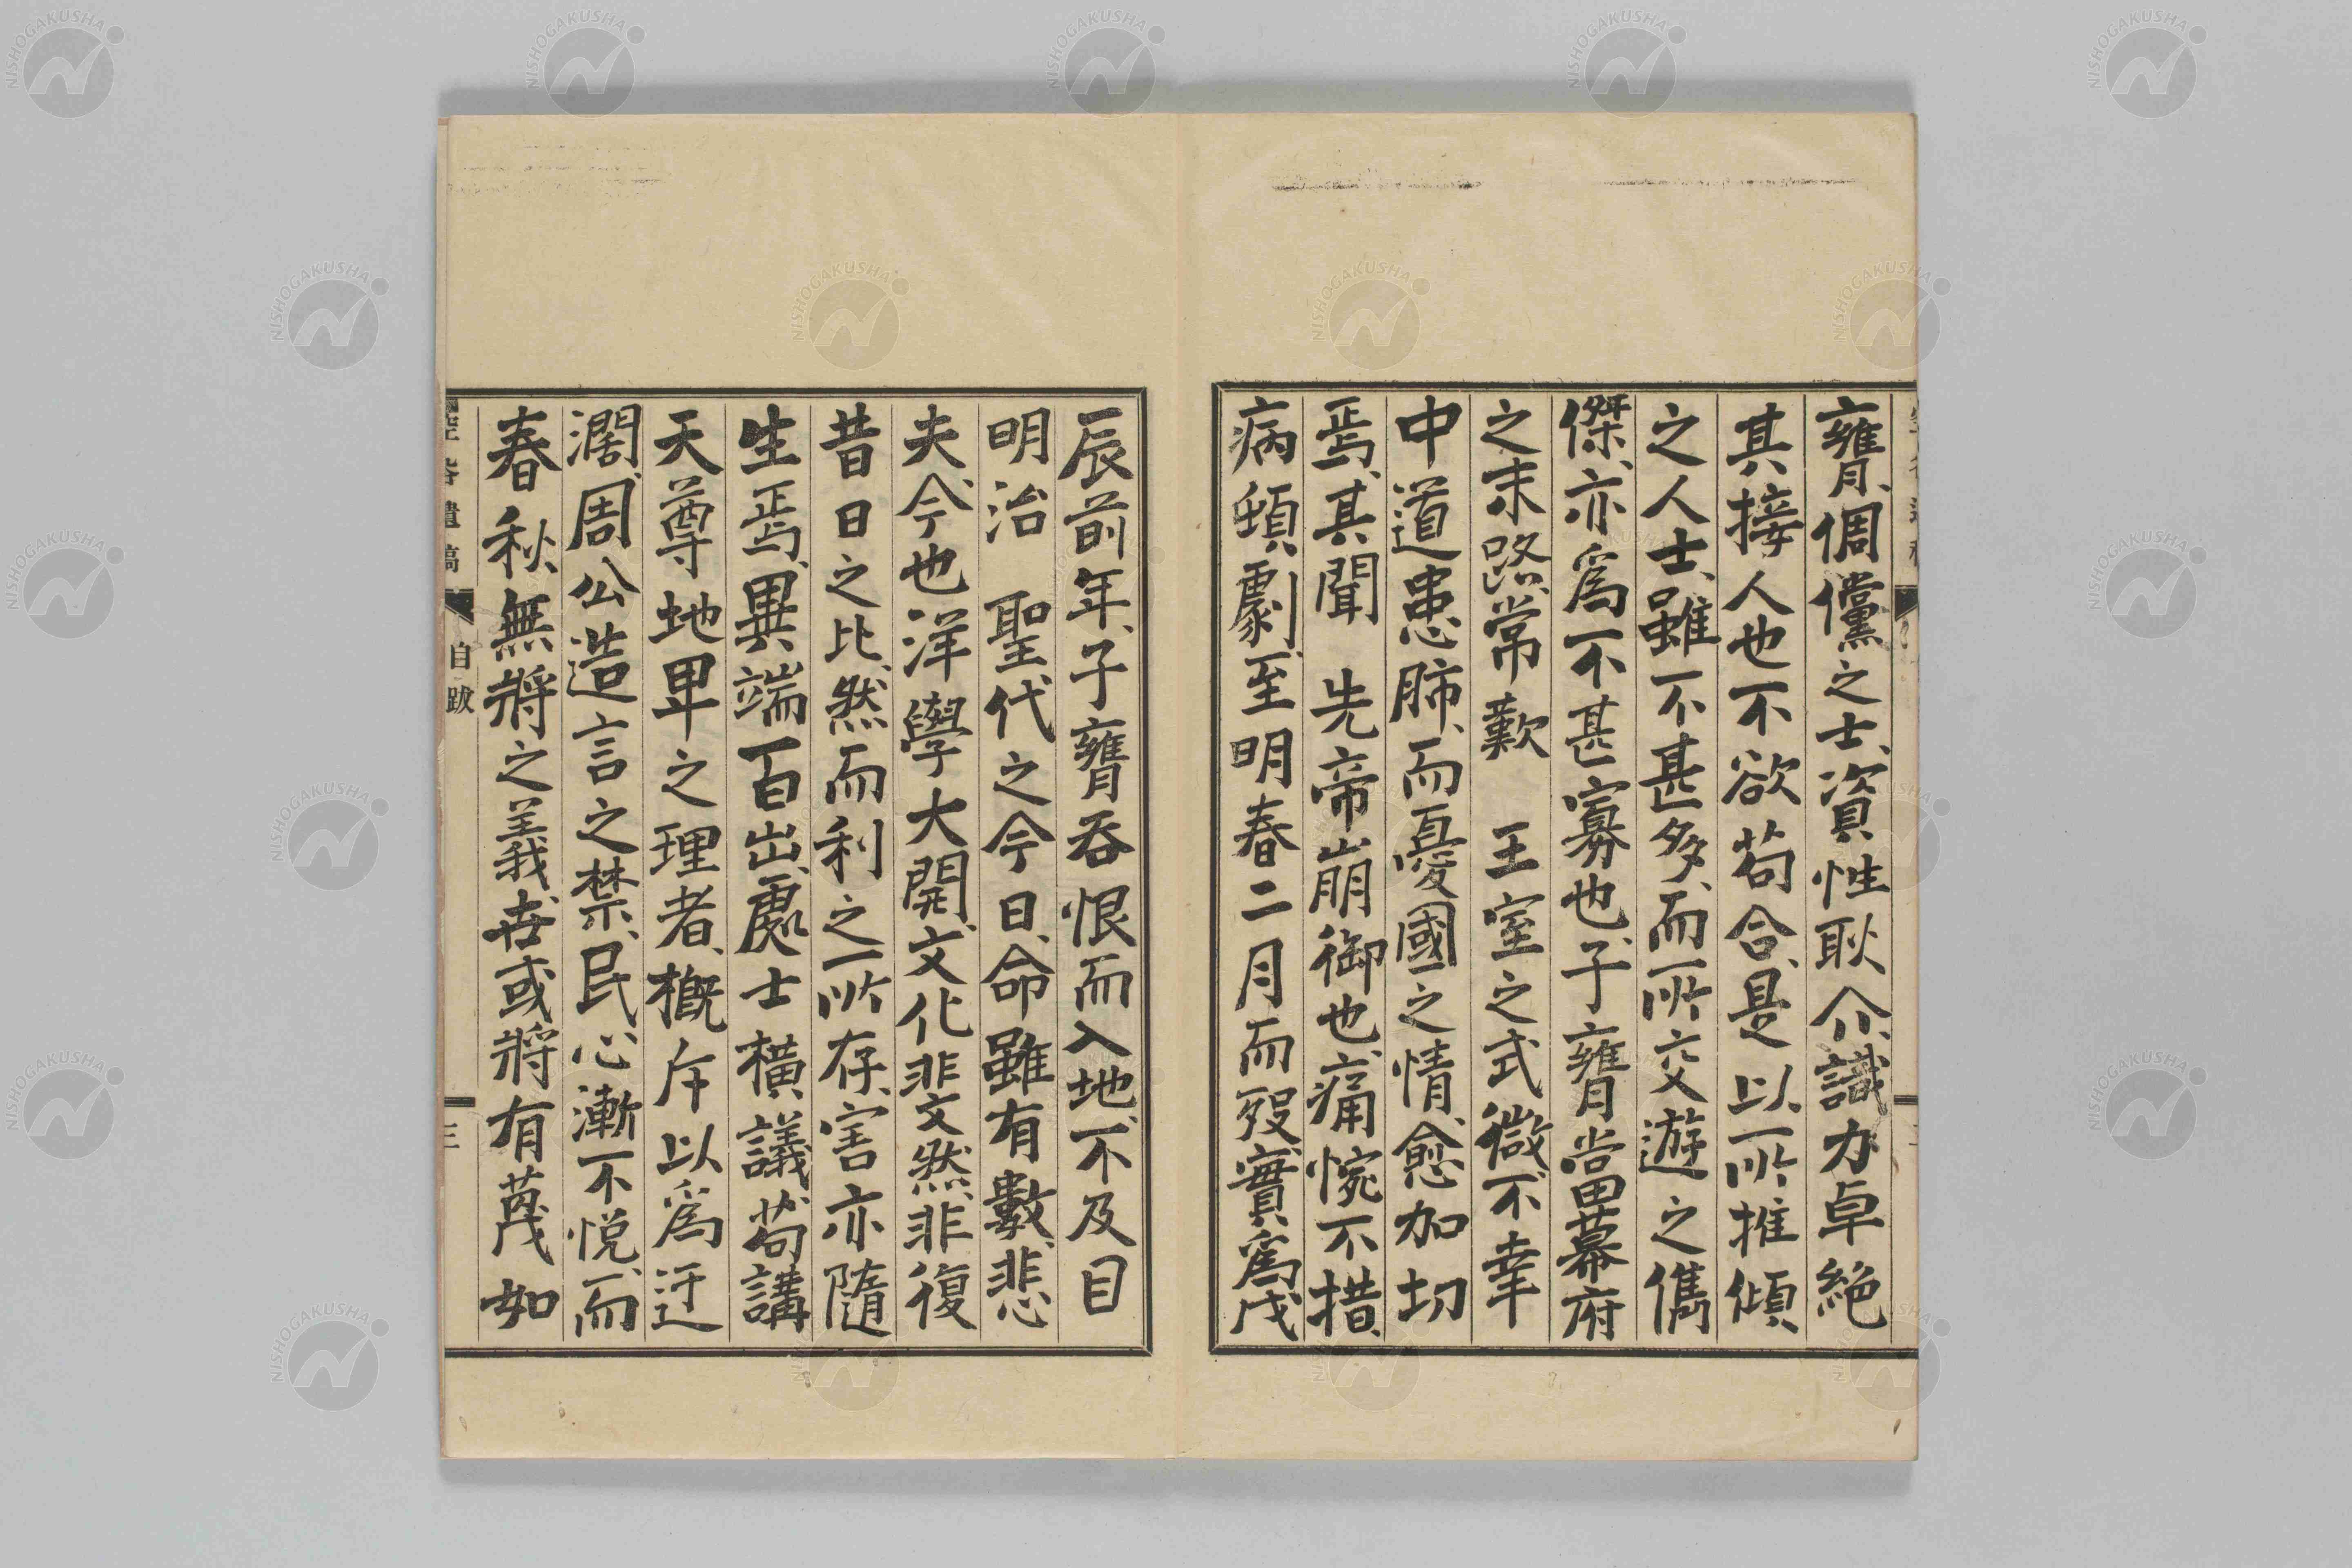 甕、倜儻之士、資性耿介、識力卓絶
其接人也不欲苟合、是以、所推傾
之人士、雖不甚多、而所交遊之儁
傑、亦爲不甚寡也、子甕當幕府
之末路、常歎　王室之式微、不幸
中道患肺、而憂國之情、愈加切
焉、其聞　先帝崩御也、痛惋不措、
病頓劇、至明春二月而歿、實爲戊
辰前年、子甕呑恨而入地、不及目
明治　聖代之今日、命雖有數、悲
夫、今也洋學大開、文化斐文然、非復
昔日之比、然而利之所存、害亦隨
生焉、異端百出、處士橫議、苟講
天尊地卑之理者、概斥以爲迂
濶、周公造言之禁、民心漸不悅、而
春秋、無將之義、世或將有蔑如
自跋
三
NISHOGAKUSHA